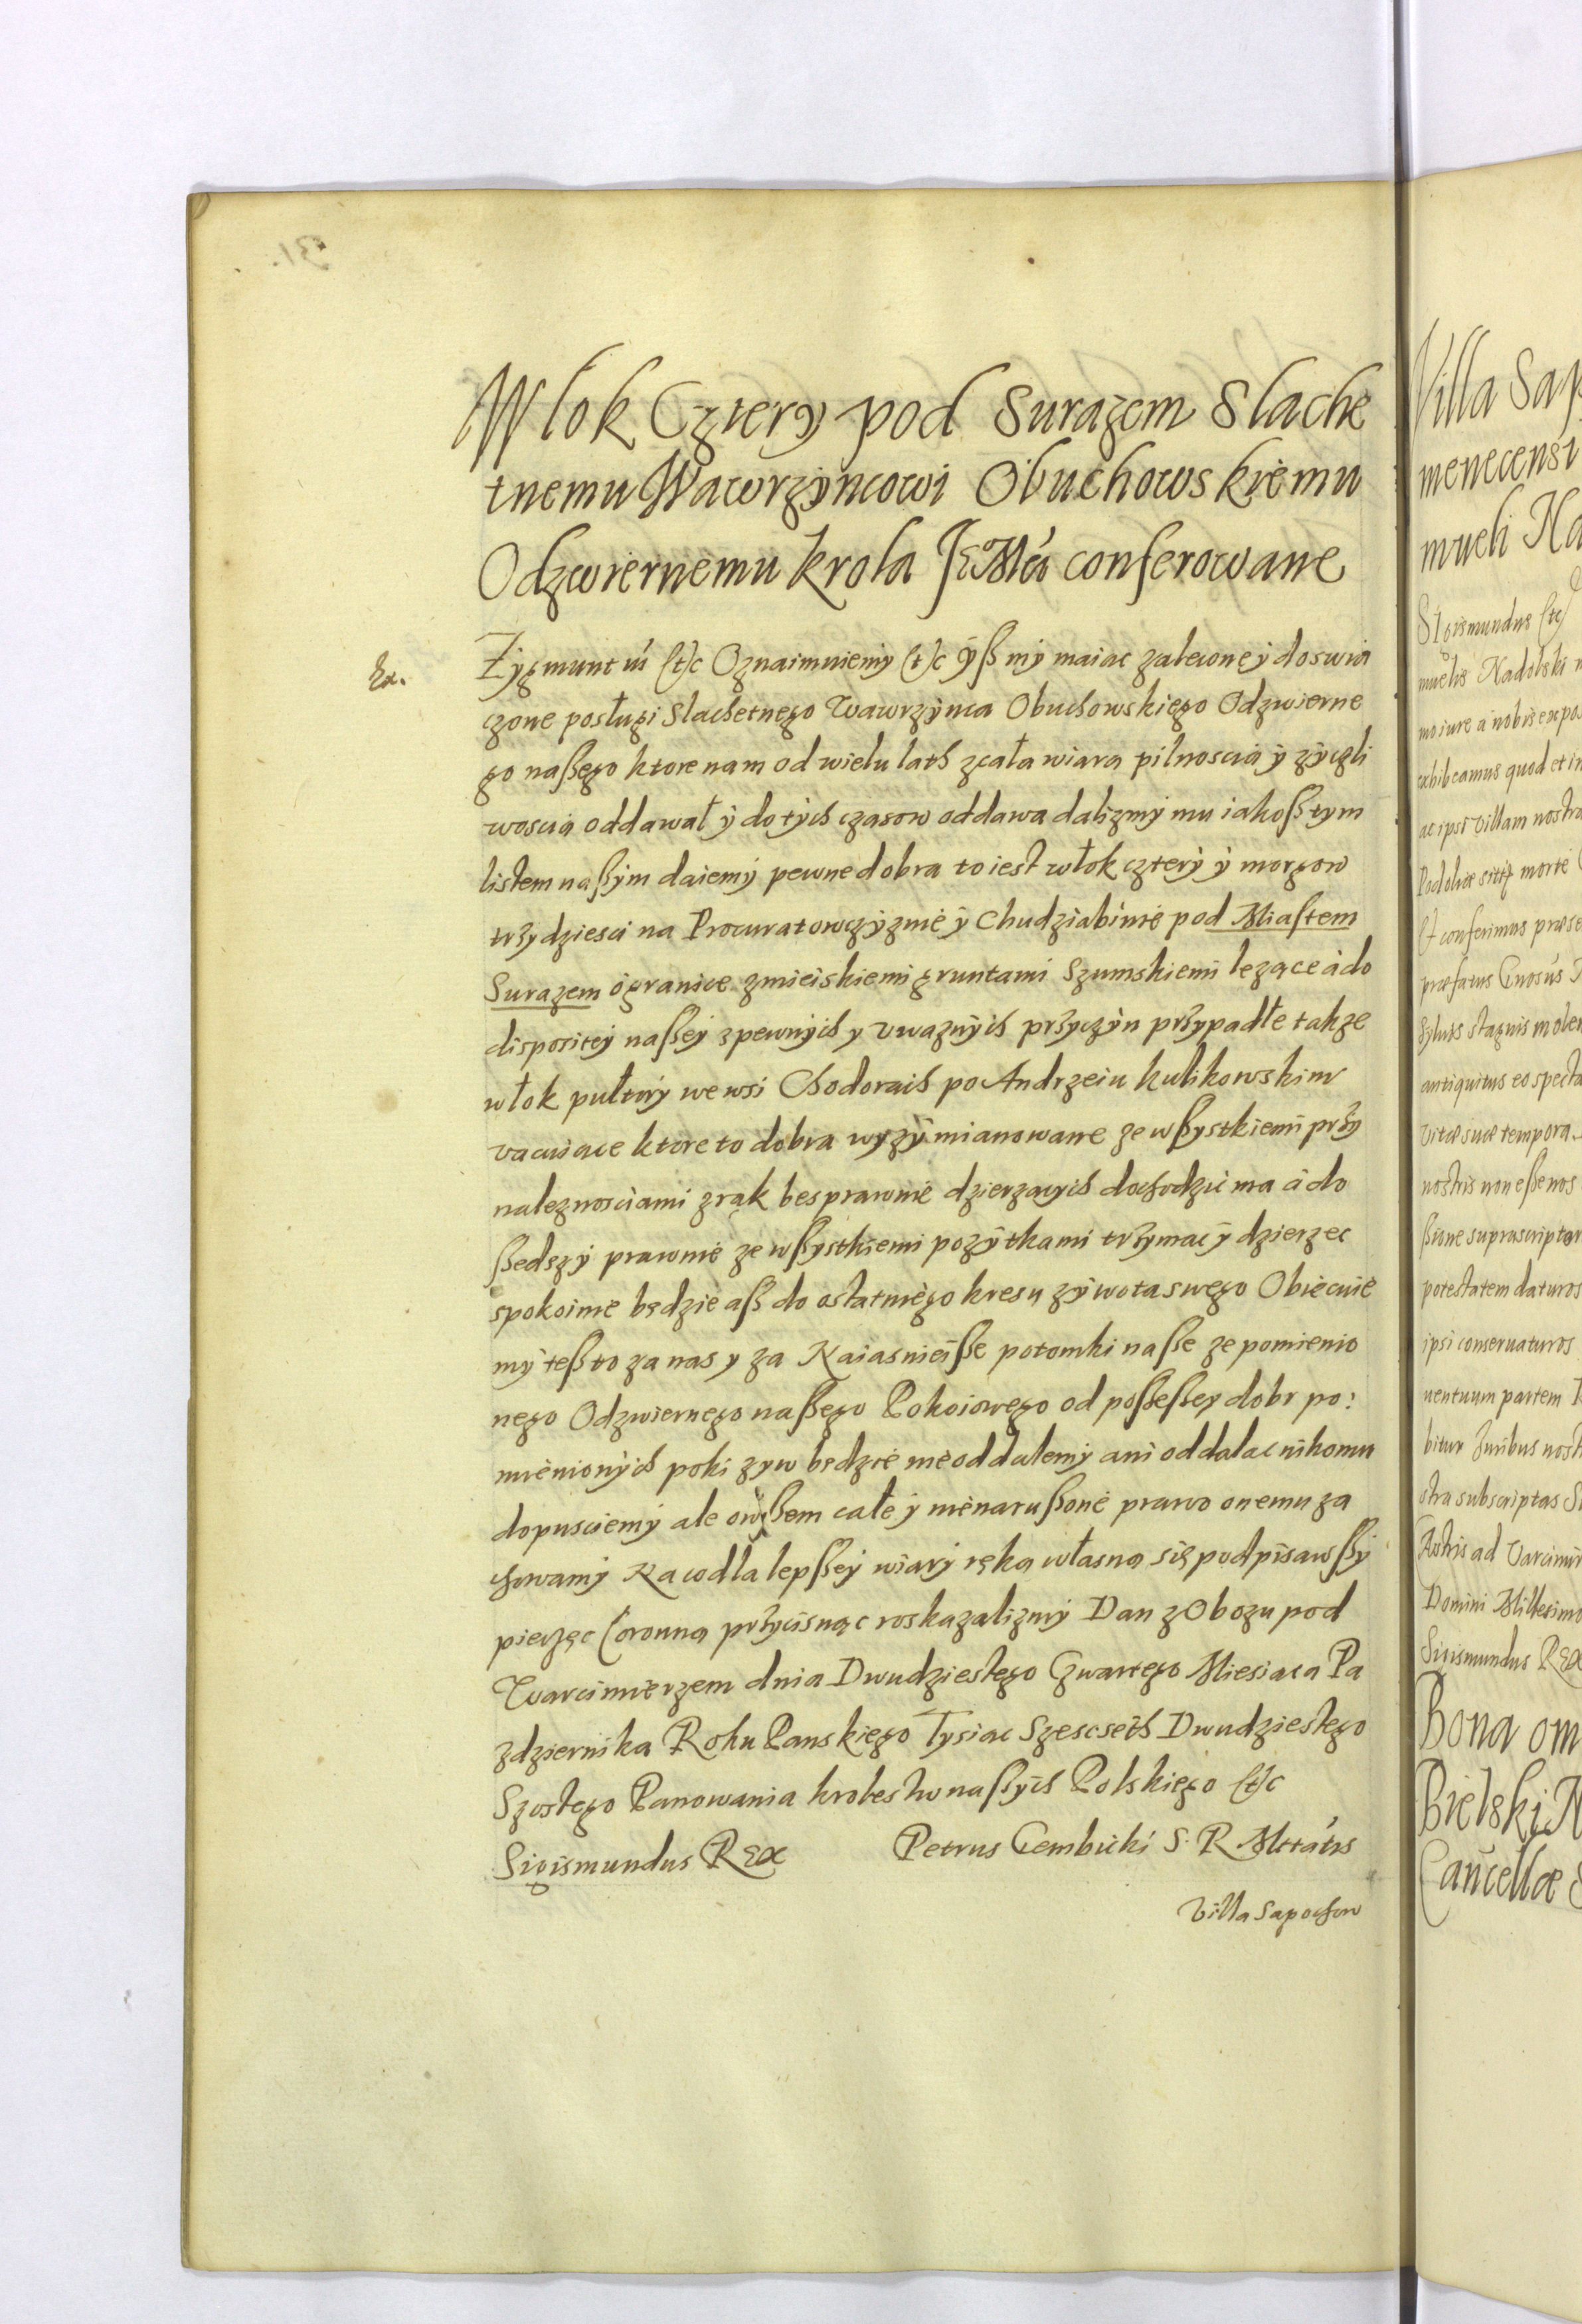 Włok Cztery pod Surazem Slache
tnemu Wawrzyncowi Obuchowskiemu
Odzwiernemu krola Je⁰Mći conferowane
Ex.
Zygmunt III (t)c Oznaimuiemy (t)c yß my maiac zalecone y doswia
czone posługi Slachetnego Wawrzynca Obuchowskiego Odzwierne
go naßego ktore nam od wielu lath zcała wiara pilnoscia y zyczli
woscia oddawał y do tych czasow oddawa dalizmy mu iakoß tym
listem naßym daiemy pewne dobra to iest włok cztery y morgow
trzydziesci na Procuratowczyznie y Chudziabinie pod Miastem
Surazem ogranice zmieiskiemi gruntami Szumskiemi lezące a do
dispositey naßey z pewnych y vwaznych przyczyn przypadłe takze
włok pułtory we wsi Chodorach po Andrzeiu Kulikowskim
vacuiace ktore to dobra wyzy mianowane ze wßystkiemi przy
naleznosciami z rąk besprawnie dzierzacych dochodzic ma a do
ßedszy prawnie ze wßystkiemi pozytkami trzymac y dzierzec
spokoinie będzie aß do ostatniego kresu zywota swego Obiecuie
my teß to za nas y za Naiasnieiße potomki naße ze pomienio
nego Odzwiernego naßego Pokoiowego od poßeßey dobr po:
mienionych poki zyw będzie nie oddalemy ani oddalac nikomu
dopusciemy ale owßem całe y nienarußone prawo onemu za
chowamy Na co dla lepßey wiary ręką własną się podpisawßy
pieczęc Coronną przycisnąc roskazalizmy Dan z Obozu pod
Warcimierzem dnia Dwudziestego Czwartego Miesiaca Pa
zdziernika Roku Panskiego Tysiac Szescseth Dwudziestego
Szostego Panowania krolestw naßych Polskiego (t)c
Sigismundus Rex Petrus Gembicki S. R. Mttātis
Villa Sapochow
Villa Sap
menecensi
mueli Na
Sigismundus (tc)
muelis Nadolski
mo iure a nobis expo
exhibeamus quod et in
ac ipsi villam nostra
Podoliæ
Et conferimus præse
præfatus Gnosus
antiquitus eo specta
vitæ suæ tempora
nostris non eße nos
ßione suprascriptor
potestatem daturos
ipsi conseruaturos
uentuum partem
bitur Juribus nost
stra subscriptas
ad Varcimir
Domini Millesimo
Sigismundus Rex
Bona om
Bielski N
Cancellæ